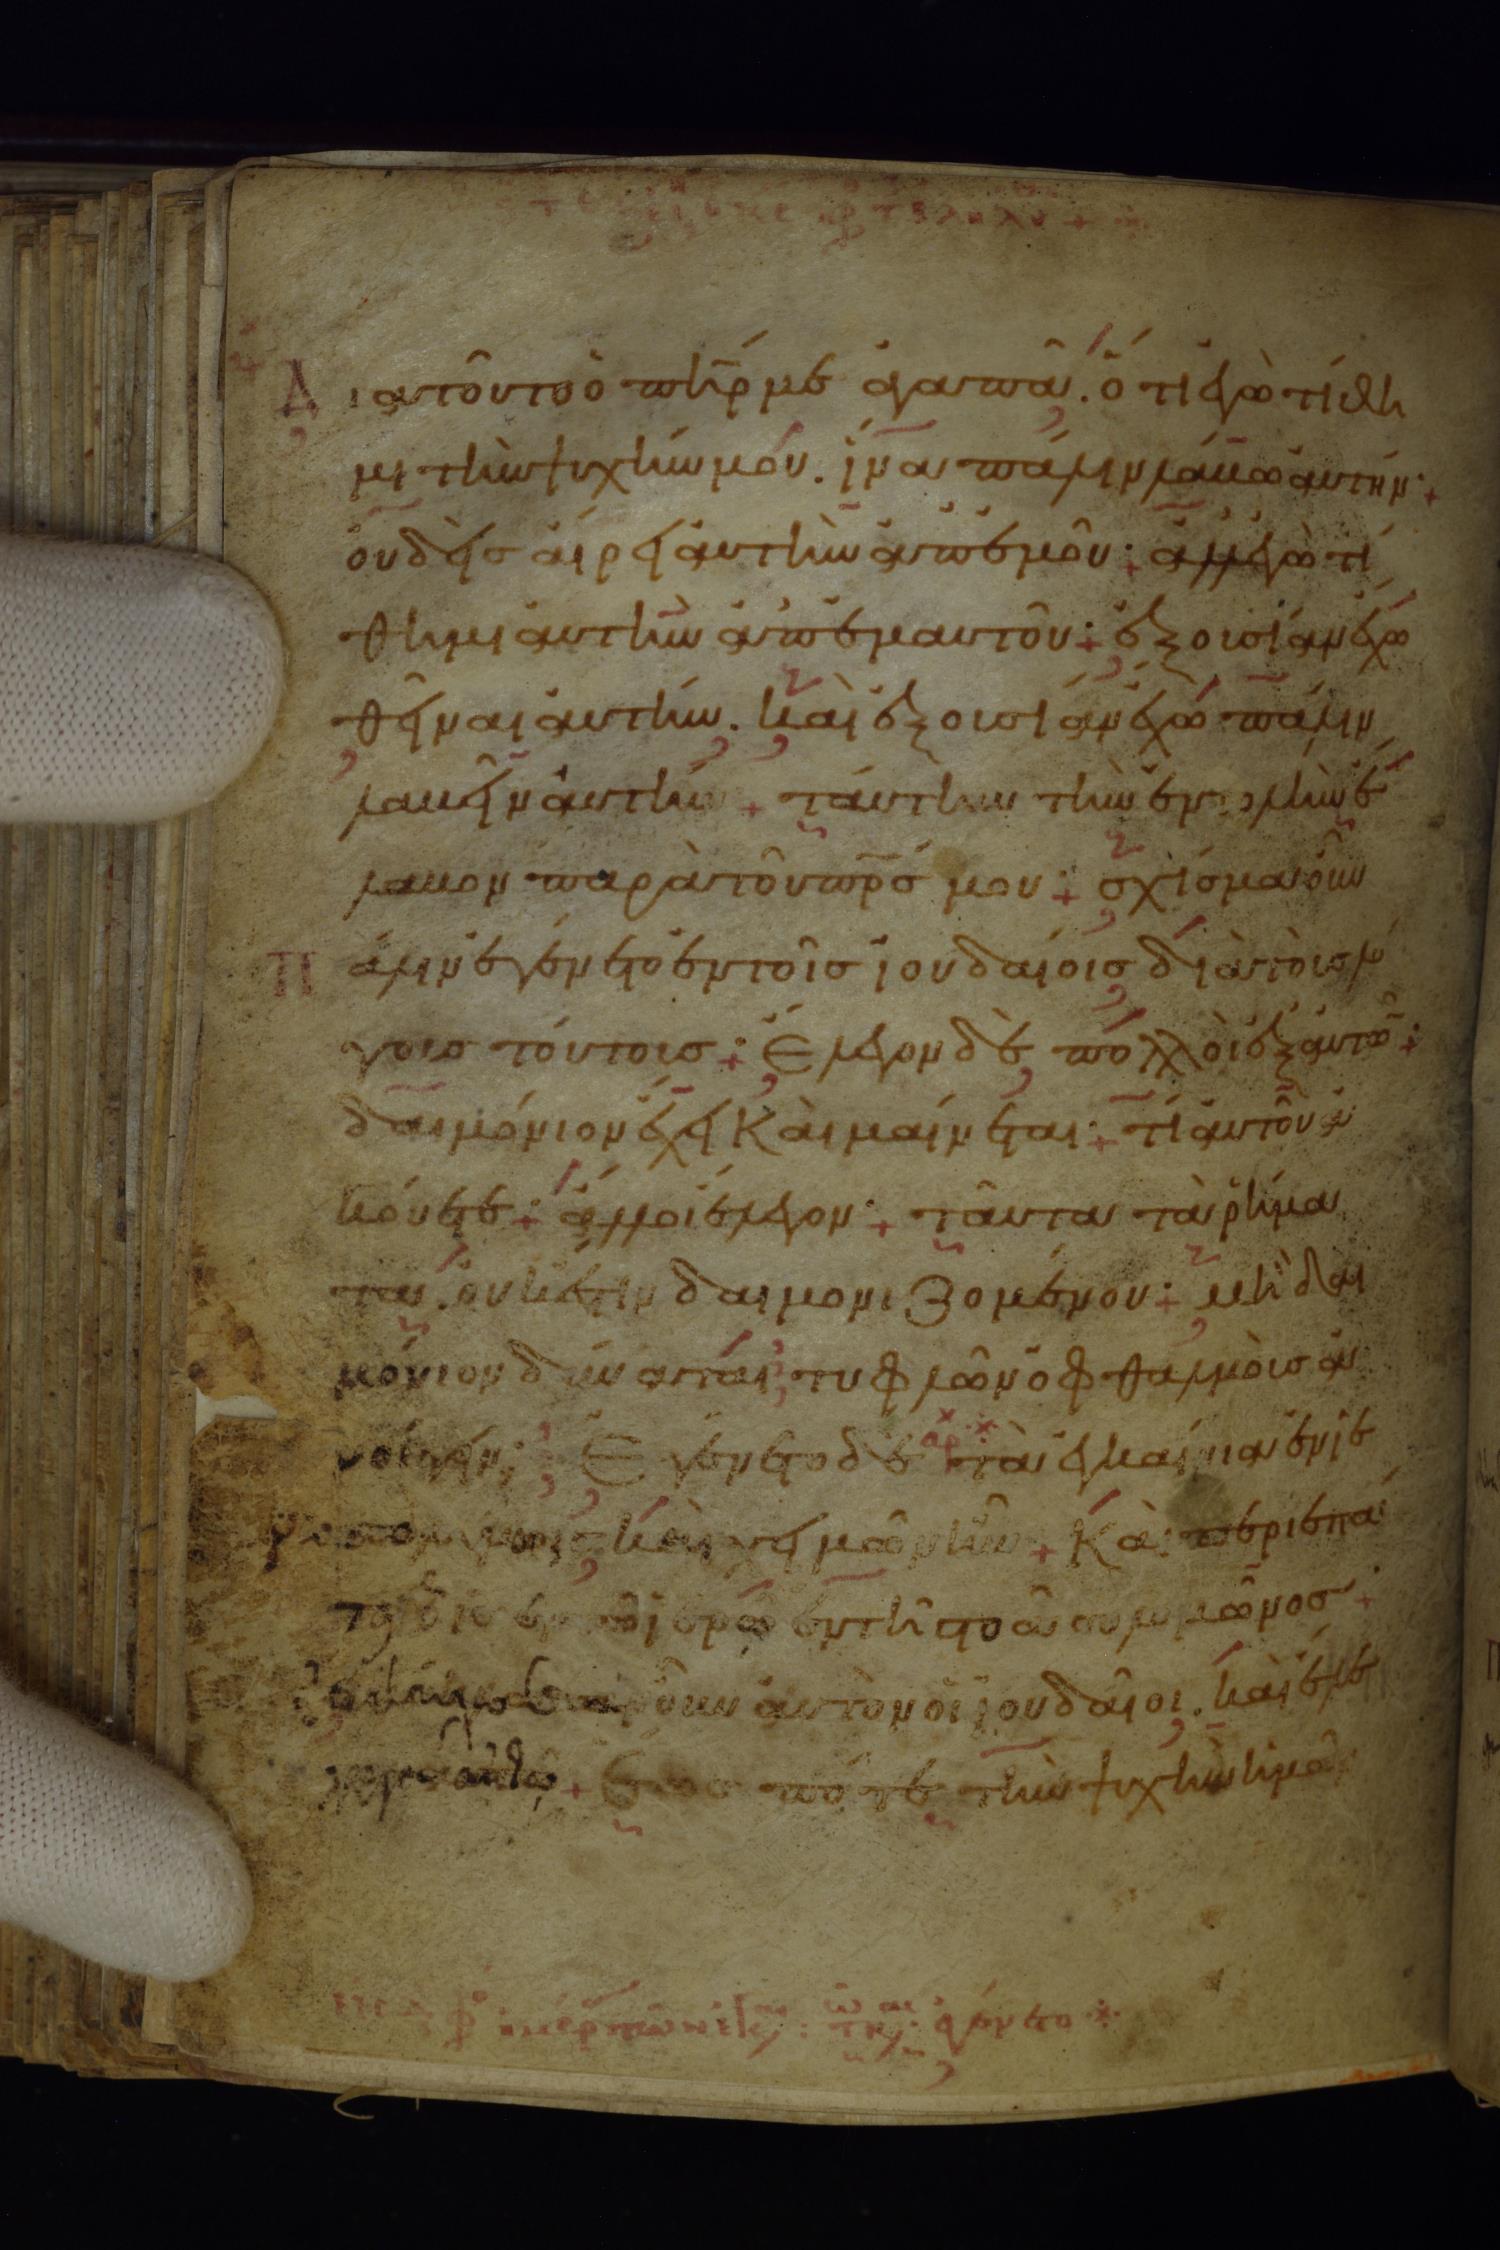 Διατοῦτο ὁ πη̅ρ με ἀγαπᾶ. ὅτι ἐγὼ τίθη
μι τὴν ψυχήν μόυ. ἵνα πάλιν λάβω ἀυτήν·+
ὀυδεὶς ἄιρει ἀυτὴν ἀπ ἐμοῦ·+ ἀλλ ἐγὼ τί
θημι ἀυτὴν ἀπ ἐμαυτοῦ·+ ἐξουσίαν ἔχω
θεῖναι ἀυτήν. καὶ ἐξουσίαν ἔχω πάλιν
λαβεῖν ἀυτήν + τάυτην τὴν ἐντολὴν ἔ
λαβον παρὰ τοῦ πρ̅ς μου·+ σχίσμα οὖν
Πάλιν ἐγένετο ἐν τοῖς ἰουδαίοις διὰ τοὺς λό
γους τόυτους·+ Ἔλεγον δὲ πολλοὶ ἐξ ἀυτῶ̅·+
δαιμόνιον ἔχει Καὶ μαίνεται·+ τί ἀυτοῦ ἀ
κόυετε·+ ἄλλοι ἔλεγον·+ ταῦτα τὰ ῥήμα
τα. ὀυκ ἔστιν δαιμονιζομένου·+ μὴ δαι
μόνιον δύναται τυφλῶν ὀφθαλμοὺς ἀ
νοίγειν; Ἐγένετο δὲ τὰ ἐγκαίνια ἐν ἱε
ροσολύμοις καὶ χειμὼν ἦν + Καὶ περιεπά
τει ὁ ἰς ἐν τῶ ἱερῶ ἐν τῆ στοᾶ σολομῶνος·+
ἐκύκλωσαν οὖν ἀυτὸν ὁι ἰουδαῖοι. καὶ ἔλε
γον ἀυτῶ + ἕως πότε τὴν ψυχὴν ἡμῶ̅